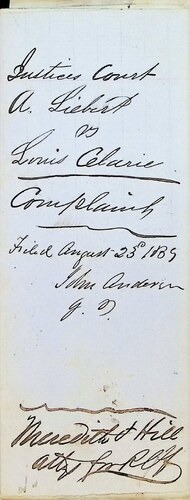 Justices Court
A. Liebert
vs
Louis Celarie
Complaint
Filed August 23d 1869
John Anderson
J. P.
Meredith & Hill
attys for Plff